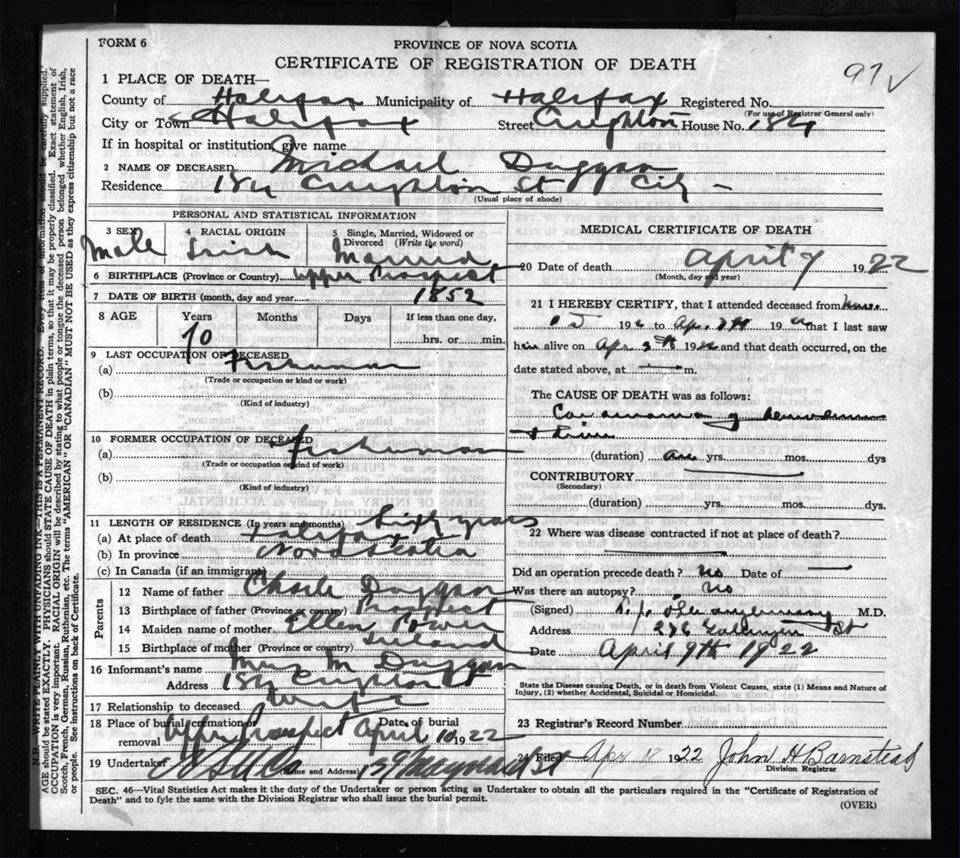 FORM 6
PROVINCE OF NOVA SCOTIA
CERTIFICATE OF REGISTRATION OF DEATH
97 ✓
1 PLACE OF DEATH—
County of Halifax Municipality of Halifax Registered No.
(For use of Registrar General only)
City or Town Halifax Street Creighton House No. 184
If in hospital or institution, give name
2 NAME OF DECEASED Michael Duggan
Residence 184 Creighton St City —
(Usual place of abode)
PERSONAL AND STATISTICAL INFORMATION
3 SEX 4 RACIAL ORIGIN 5 Single, Married, Widowed or Divorced (Write the word)
Male Irish Married
6 BIRTHPLACE (Province or Country) Upper Prospect
7 DATE OF BIRTH (month, day and year) 1852
8 AGE Years Months Days If less than one day,
70 hrs. or min.
9 LAST OCCUPATION OF DECEASED
(a) Fisherman
(Trade or occupation or kind or work)
(b)
(Kind of industry)
10 FORMER OCCUPATION OF DECEASED
(a) Fisherman
(Trade or occupation or kind of work)
(b)
(Kind of industry)
11 LENGTH OF RESIDENCE (In years and months) Sixty years
(a) At place of death Halifax
(b) In province Nova Scotia
(c) In Canada (if an immigrant)
Parents
12 Name of father Charle Duggan
13 Birthplace of father (Province or country) Prospect
14 Maiden name of mother Ellen Power
15 Birthplace of mother (Province or country) Ireland
16 Informant's name Mrs M Duggan
Address 184 Creighton St
17 Relationship to deceased Wife
18 Place of burial, cremation or removal Upper Prospect Date of burial April 10 1922
19 Undertaker N S U Co (Name and Address) 139 Maynard St
MEDICAL CERTIFICATE OF DEATH
20 Date of death April 9 1922
(Month, day and year)
21 I HEREBY CERTIFY, that I attended deceased from
192 to Apr. 19 that I last saw
him alive on Apr 19 and that death occurred, on the
date stated above, at m.
The CAUSE OF DEATH was as follows:
(duration) yrs. mos. dys
CONTRIBUTORY
(Secondary)
(duration) yrs. mos. dys.
22 Where was disease contracted if not at place of death?
Did an operation precede death? No Date of —
Was there an autopsy? No
(Signed) M.D.
Address St
Date April 9th 1922
State the Disease causing Death, or in death from Violent Causes, state (1) Means and Nature of
Injury, (2) whether Accidental, Suicidal or Homicidal.
23 Registrar's Record Number
24 Filed Apr 1922 John H Barnstead
Division Registrar
SEC. 46—Vital Statistics Act makes it the duty of the Undertaker or person acting as Undertaker to obtain all the particulars required in the "Certificate of Registration of
Death" and to fyle the same with the Division Registrar who shall issue the burial permit.
(OVER)
N.B. WRITE PLAINLY WITH UNFADING INK—THIS IS A PERMANENT RECORD. Every item of information should be carefully supplied.
AGE should be stated EXACTLY. PHYSICIANS should STATE CAUSE OF DEATH in plain terms, so that it may be properly classified. Exact statement of
OCCUPATION is very important. RACIAL ORIGIN will be described by stating to what people or tongue the deceased person belonged whether English, Irish,
Scotch, French, German, Russian, Ruthenian, etc. The terms "AMERICAN" OR "CANADIAN" MUST NOT BE USED as they express citizenship but not a race
or people. See instructions on back of Certificate.